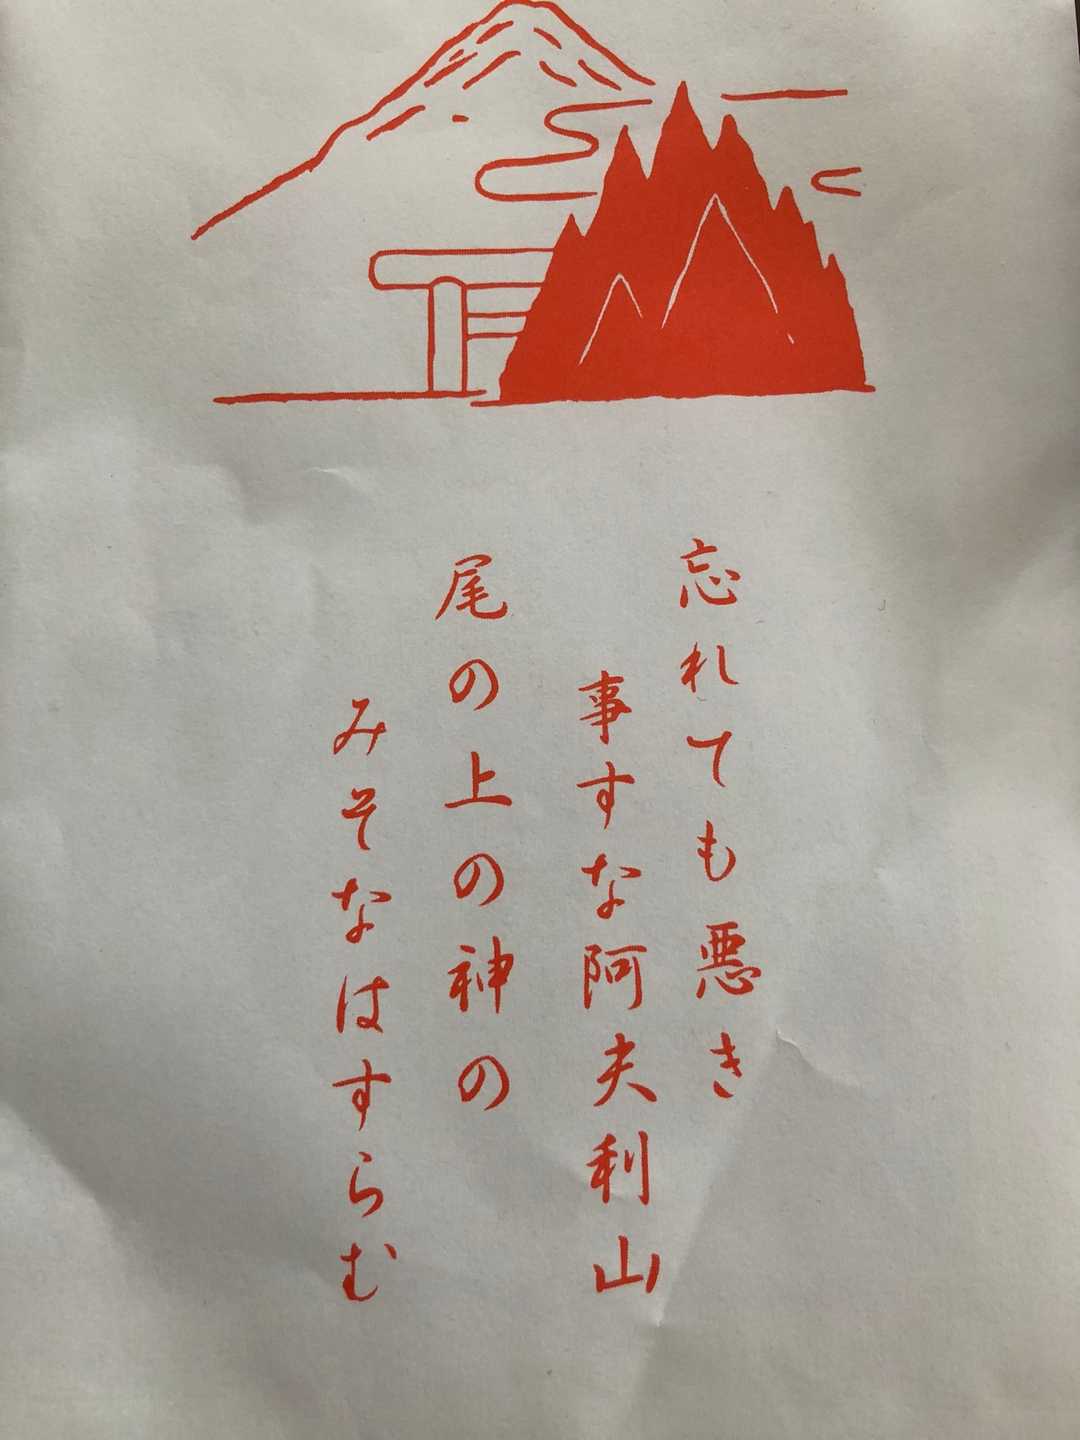 忘れても悪き
事すな阿夫利山
尾の上の神の
みそなはすらむ